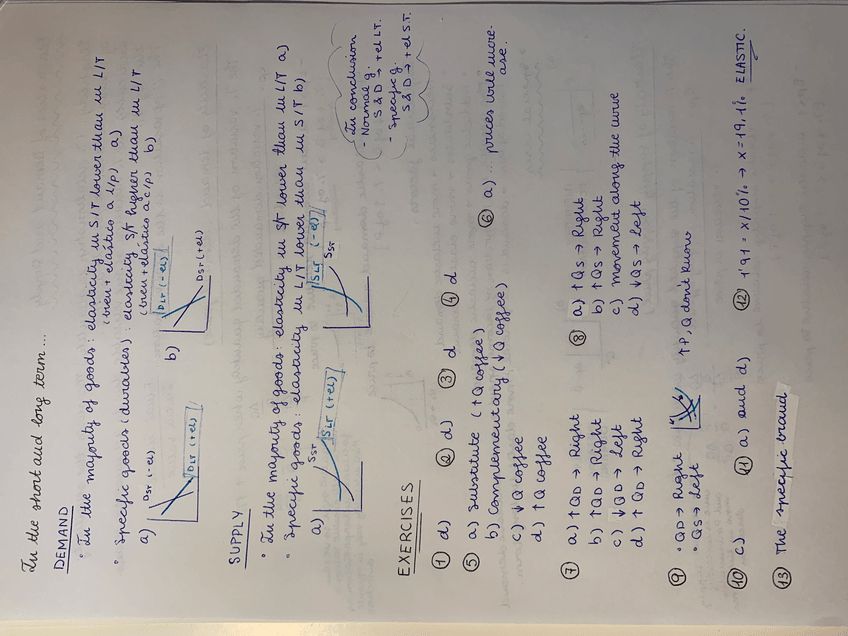 In the short and long term...
DEMAND
• In the majority of goods: elasticity in S/T lower than in L/T
(bien + elástico a l/p) a)
• Specific goods (durables): elasticity S/T higher than in L/T
(bien + elástico a c/p) b)
a) DST (-el)
DLT (+el)
b) DLT (-el)
DST (+el)
SUPPLY
• In the majority of goods: elasticity in S/T lower than in L/T a)
• Specific goods: elasticity in L/T lower than in S/T b)
a) SST
SLT (+el)
SLT (-el)
SST
In conclusion
- Normal g.
S & D → +el LT.
- Specific g.
S & D → +el S.T.
EXERCISES
① d) ② d) ③ d ④ d
⑤ a) Substitute (↑Q coffee)
b) Complementary (↓Q coffee)
c) ↓Q coffee
d) ↑Q coffee
⑥ a) ... prices will incre-
ase.
⑦ a) ↑QD → Right
b) ↑QD → Right
c) ↓QD → Left
d) ↑QD → Right
⑧ a) ↑QS → Right
b) ↑QS → Right
c) movement along the curve
d) ↓QS → Left
⑨ • QD → Right
• QS → Left
↑P, Q don't know
⑩ c) ⑪ a) and d) ⑫ 1'91 = x/10% → x = 19,1% ELASTIC.
⑬ The specific brand